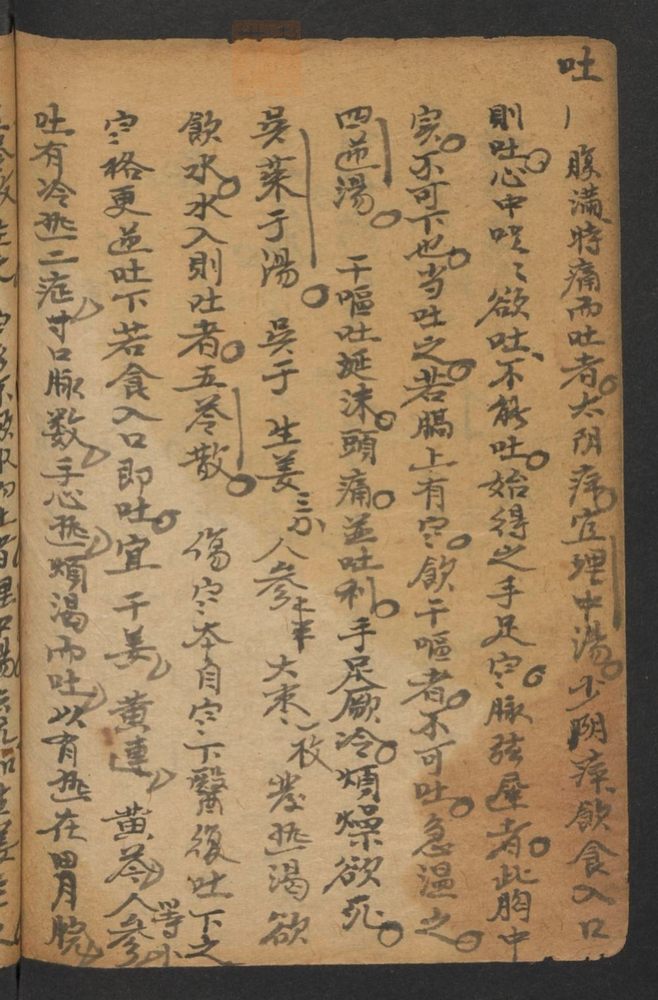 吐 丨腹满時痛而吐者太阴病宜理中湯 少阴病飲食入口
則吐心中唴〻欲吐不能吐始得之手足寒脉弦遲者此胸中
实不可下也当吐之若膈上有寒飲干嘔者不可吐急温之
四逆湯 干嘔吐涎沫頭痛並吐利手足厥冷煩燥欲死
吴茱于湯 吴于 生姜三分 人参 大枣 枚 發热渴欲
飲水水入則吐者五苓散 傷寒本自寒下醫復吐下之
寒格更逆吐下若食入口即吐宜干姜 黄連 黄芩 人参等分
吐有冷热二症寸口脉数手心热煩渴而吐以有热在胃脘